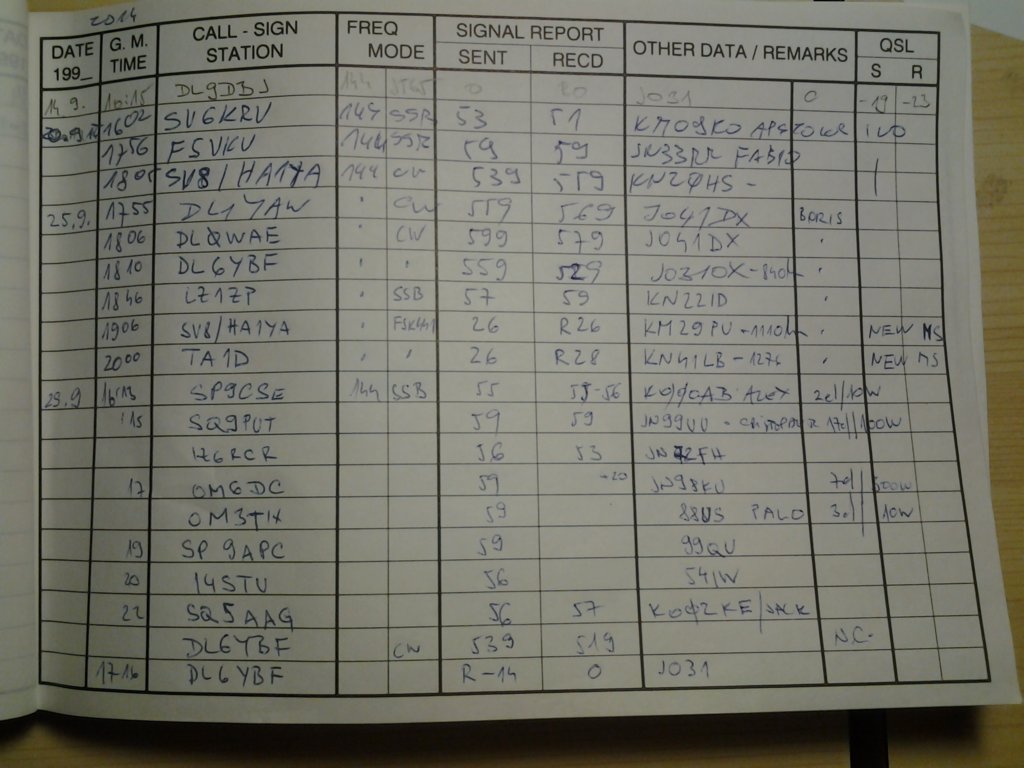 2014
DATE 199_ G. M. TIME CALL - SIGN STATION FREQ MODE SIGNAL REPORT SENT RECD OTHER DATA / REMARKS QSL S R
14.9. 16:15 DL9DBJ 144 JT65 0 JO31 0 -19 -23
1602 SV6KRV 144 SSB 53 51 KM09KO
1756 F5VKV 144 SSB 59 59 JN33RR FABIO
1805 SV8/HA1YA 144 CW 539 559 -
25.9. 1755 DL1YAW ' CW 559 569 JO41DX BORIS
1806 DLØWAE ' CW 599 579 JO41DX '
1810 DL6YBF ' ' 559 529 JO31OX-840km '
1846 LZ1ZP ' SSB 57 59 KN22ID '
1906 SV8/HA1YA ' FSK441 26 R26 KM29PU-1110km ' NEW MS
2000 TA1D ' ' 26 R28 KN41LB-1276 ' NEW MS
29.9 SP9CSE 144 SSB 55 55-56 2el/10W
:15 SQ9PUT 59 59 JN99UU - 17el/100W
56 53
17 OM6DC 59 -20 JN98KU 7el 500W
OM3TIX 59 88US PALO 3el 10W
19 SP9APC 59 99QU
20 I4STU 56 54IW
22 SQ5AAG 56 57 KOØ2KE/JACK
DL6YBF CW 539 519 N.C.
1716 DL6YBF R-14 0 JO31